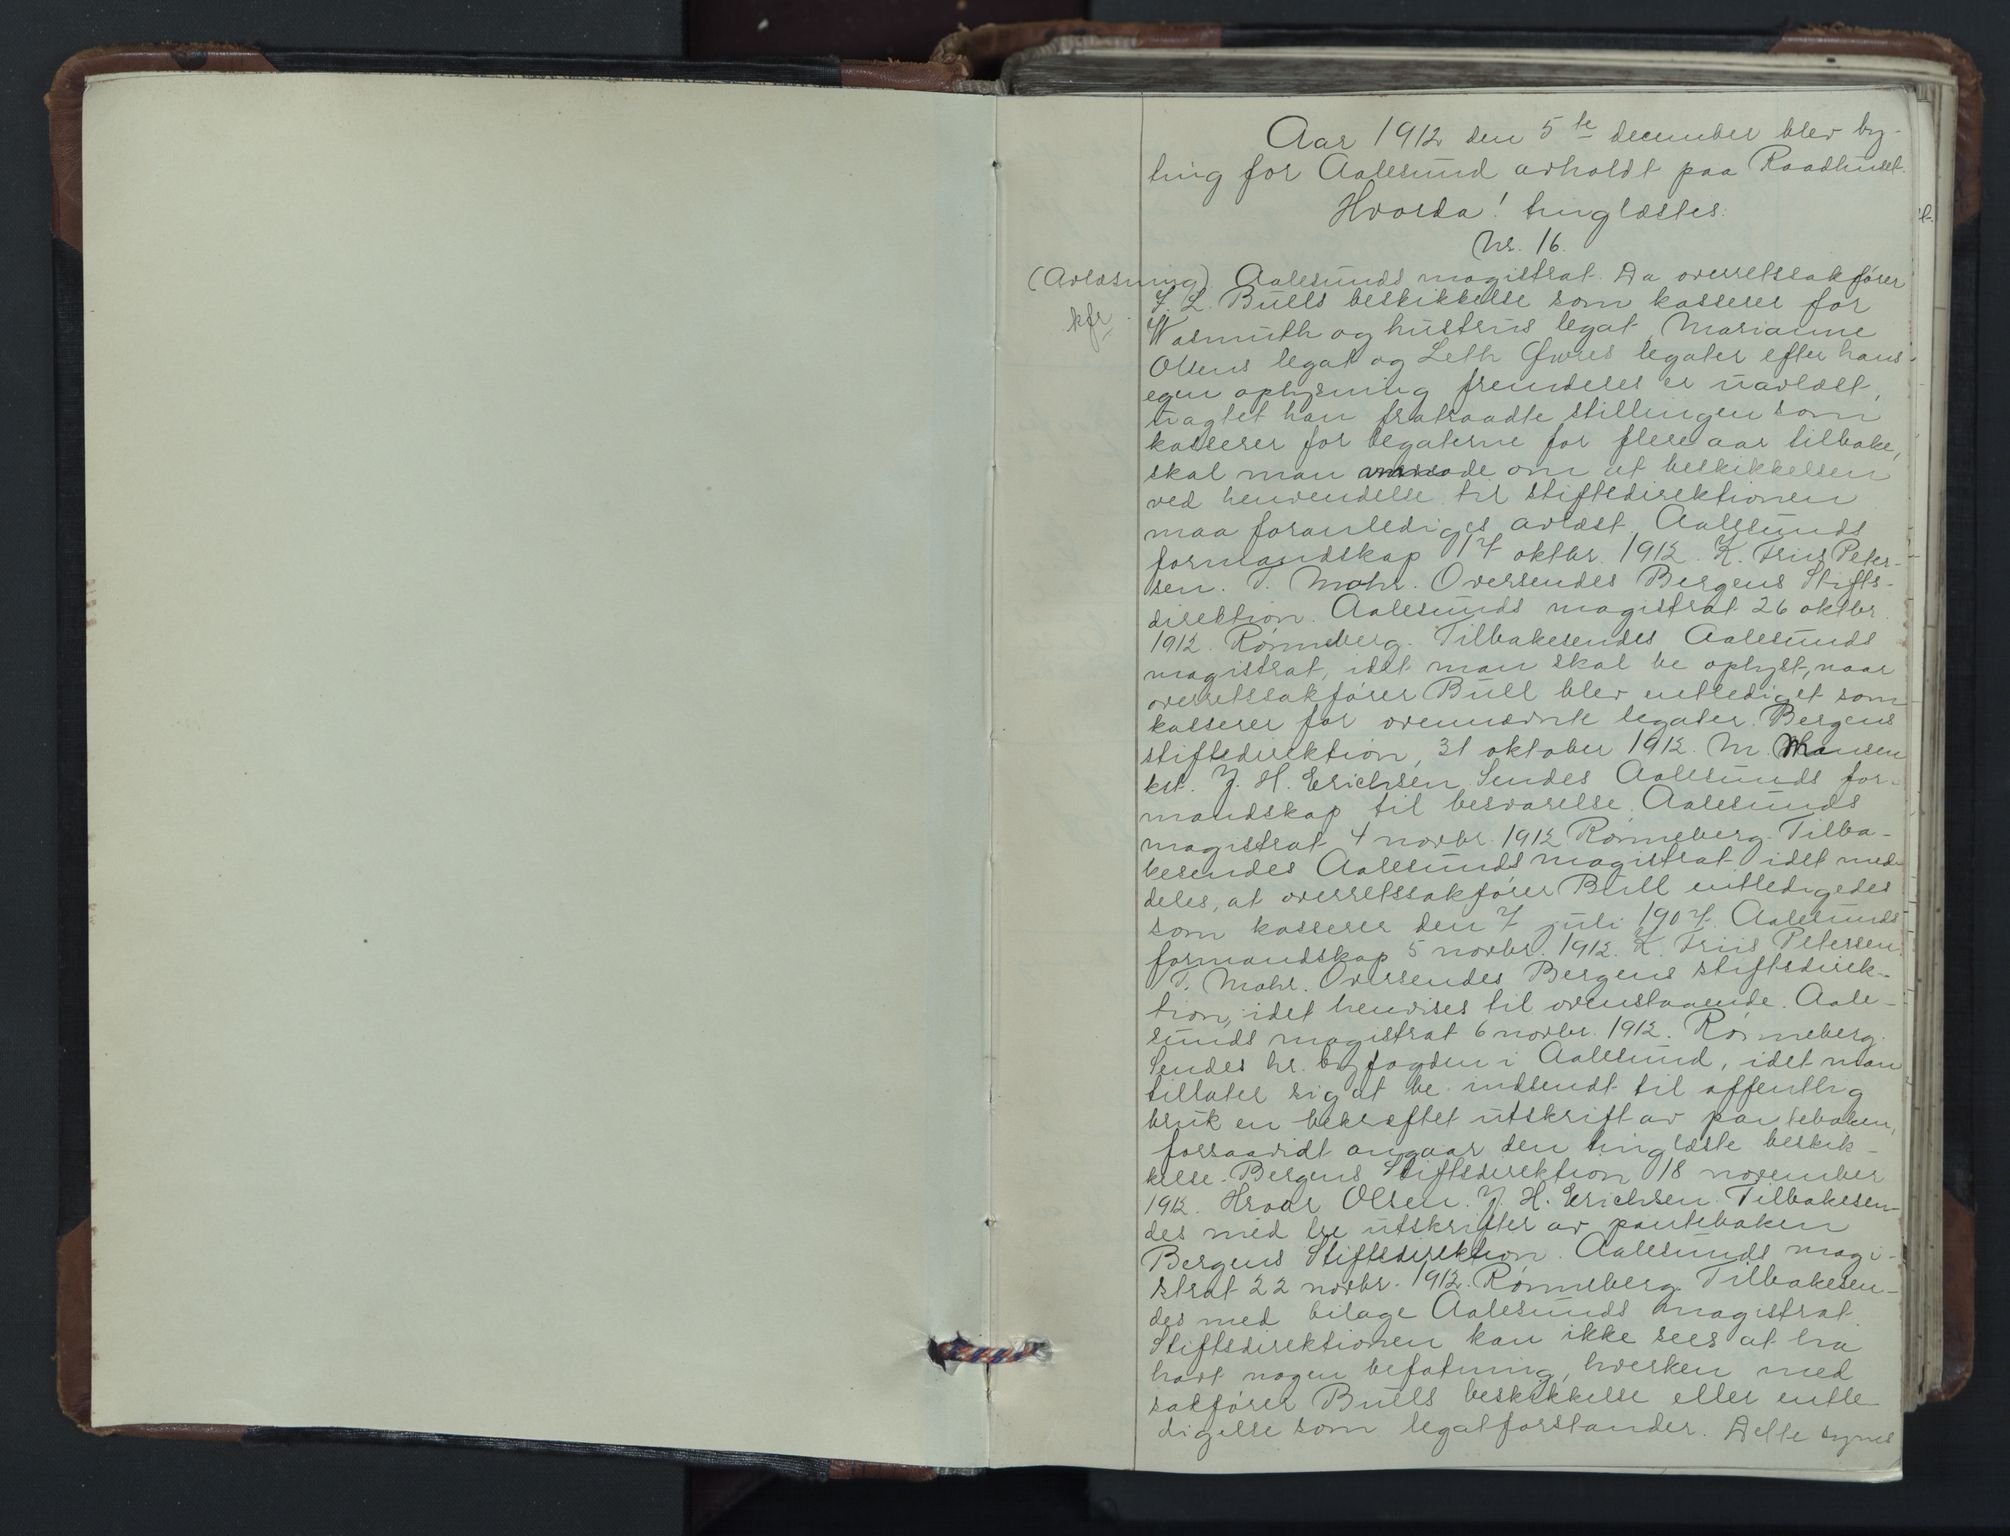 Aar 1912 den 5te december blev by-
ting for Aalesund avholdt paa Raadhuset.
Hvorda! tinglæstes:
Nr. 16.
(Avlæsning) Aalesunds magistrat. Da overretssakfører
kfr. L. Bulls beskikkelse som kasserer for
Wasmuth og hustrus legat, Marianne
Olsens legat og Leth Øwres legater efter hans
egen oplysning fremdeles er uavlæst,
uagtet han fratraadte stillingen som
kasserer for legaterne for flere aar tilbake,
skal man om at beskikkelsen
ved henvendelse til stiftsdirektionen
maa foranlediges avlæst. Aalesunds
formandskap 17 oktbr. 1912. K. Friis Peter-
sen. T. Mohr. Oversendes Bergens Stifts-
direktion. Aalesunds magistrat 26 oktbr.
1912. Rønneberg. Tilbakesendes Aalesunds
magistrat, idet man skal be oplyst, naar
overretssakfører Bull blev entlediget som
kasserer for ovennævnte legater. Bergens
stiftsdirektion, 31 oktober 1912. M. Hansen
kst. J. H. Erichsen. Sendes Aalesunds for-
mandskap til besvarelse. Aalesunds
magistrat 4 novbr. 1912. Rønneberg. Tilba-
kesendes Aalesunds magistrat idet med-
deles, at overretssakfører Bull entledigedes
som kasserer den 7 juli 1907. Aalesunds
formandskap 5 novbr. 1912. K. Friis Petersen.
T. Mohr. Oversendes Bergens stiftsdirek-
tion, idet henvises til ovenstaaende. Aale-
sunds magistrat 6 novbr. 1912. Rønneberg.
Sendes hr. byfogden i Aalesund, idet man
tillater sig at be indsendt til offentlig
bruk en bekræftet utskrift av panteboken,
forsaavidt angaar den tinglæste beskik-
kelse. Bergens Stiftsdirektion 18 november
1912. Hroar Olsen. J. H. Erichsen. Tilbakesen-
des med tre utskrifter av panteboken
Bergens Stiftsdirektion. Aalesunds magi-
strat 22 novbr. 1912. Rønneberg. Tilbakesen-
des med bilage Aalesunds magistrat.
Stiftsdirektionen kan ikke sees at ha
havt nogen befatning, hverken med
sakfører Bulls beskikkelse eller entle-
digelse som legatforstander. Dette synes